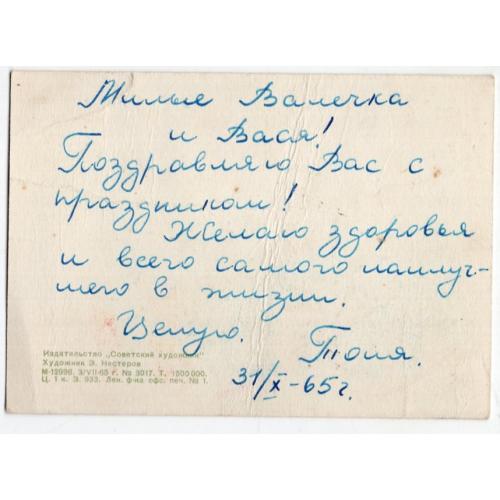 Милые Валечка
и Вася!
Поздравляю Вас с
праздником!
Желаю здоровья
и всего самого наилуч-
шего в жизни.
Целую.
Толя.
31/X-65 г.
Издательство „Советский художник"
Художник Э. Нестеров
М-12996. 3/VII-65 г. № 3017. Т. 1500 000.
Ц. 1 к. З. 933. Лен. ф-ка офс. печ. № 1.